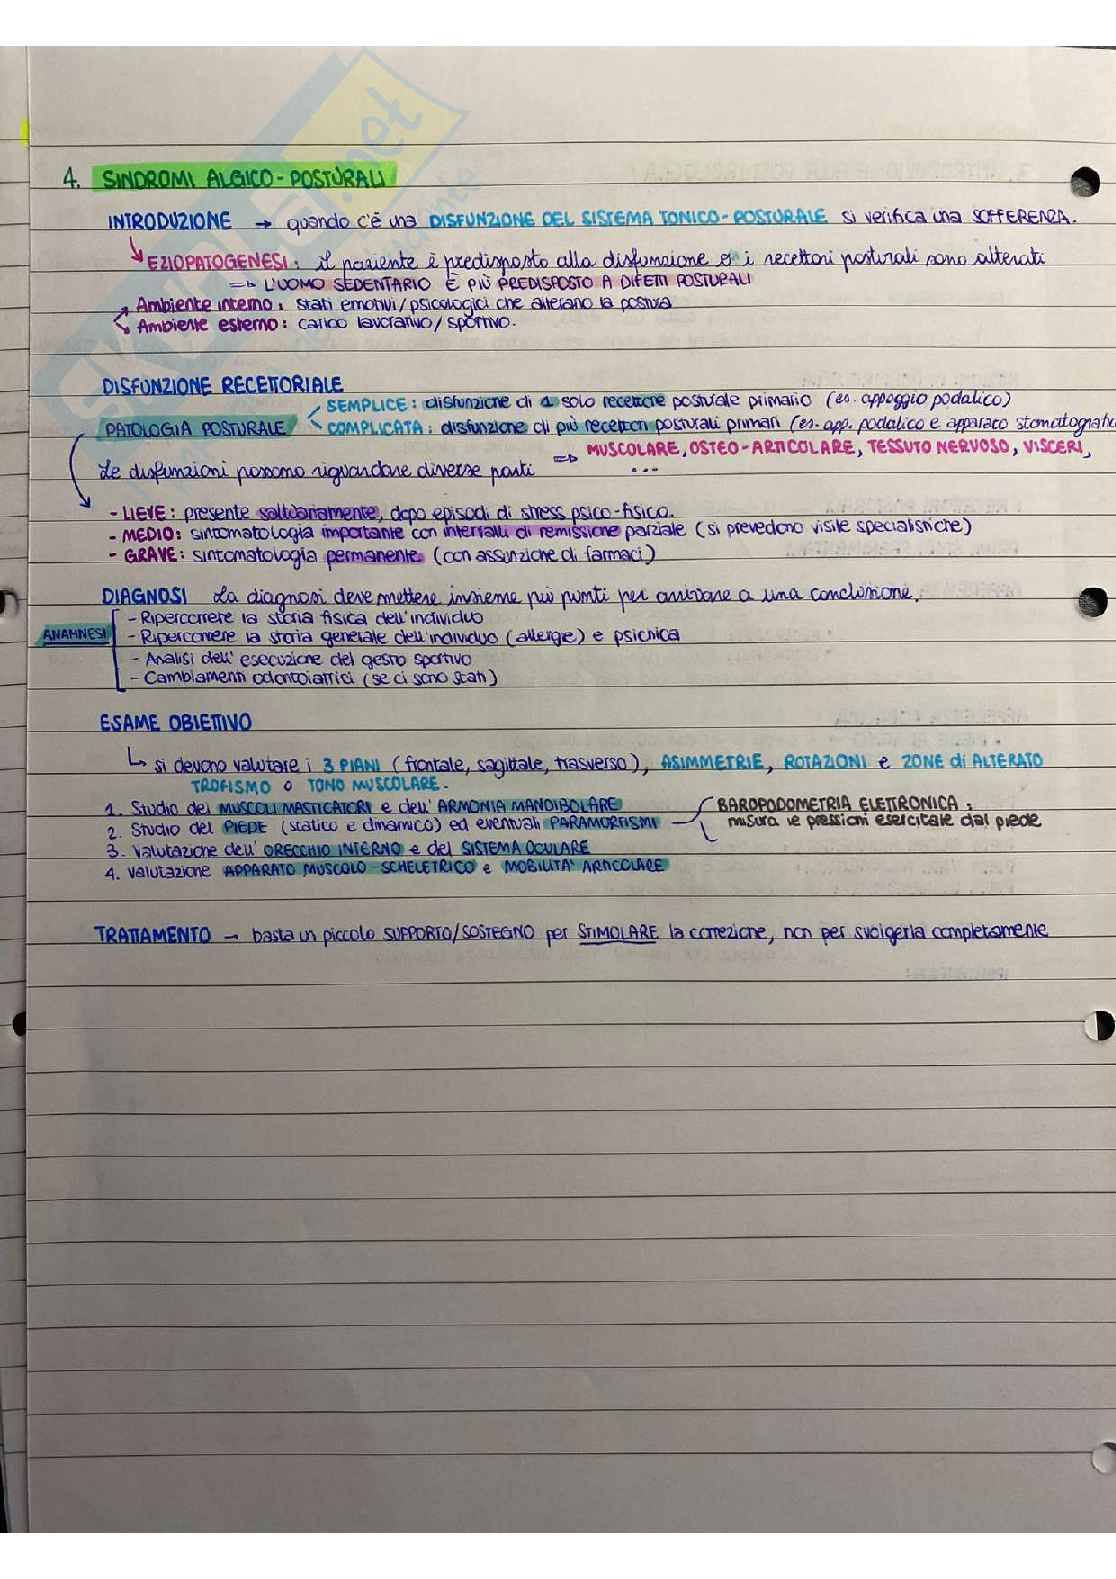 4. SINDROMI ALGICO-POSTURALI
INTRODUZIONE → quando c'è una DISFUNZIONE DEL SISTEMA TONICO-POSTURALE si verifica una SOFFERENZA.
EZIOPATOGENESI: il paziente è predisposto alla disfunzione e i recettori posturali sono alterati
=> L'UOMO SEDENTARIO È PIÙ PREDISPOSTO A DIFETTI POSTURALI
Ambiente interno: stati emotivi/psicologici che alterano la postura
Ambiente esterno: carico lavorativo/sportivo.
DISFUNZIONE RECETTORIALE
SEMPLICE: disfunzione di 1 solo recettore posturale primario (es. appoggio podalico)
PATOLOGIA POSTURALE
COMPLICATA: disfunzione di più recettori posturali primari (es. app. podalico e apparato stomatognatic
Le disfunzioni possono riguardare diverse parti => MUSCOLARE, OSTEO-ARTICOLARE, TESSUTO NERVOSO, VISCERI, ...
- LIEVE: presente saltuariamente, dopo episodi di stress psico-fisico.
- MEDIO: sintomatologia importante con intervalli di remissione parziale (si prevedono visite specialistiche)
- GRAVE: sintomatologia permanente (con assunzione di farmaci)
DIAGNOSI La diagnosi deve mettere insieme più punti per arrivare a una conclusione.
- Ripercorrere la storia fisica dell'individuo
ANAMNESI - Ripercorrere la storia generale dell'individuo (allergie) e psichica
- Analisi dell'esecuzione del gesto sportivo
- Cambiamenti odontoiatrici (se ci sono stati)
ESAME OBIETTIVO
↳ si devono valutare i 3 PIANI (frontale, sagittale, trasverso), ASIMMETRIE, ROTAZIONI e ZONE di ALTERATO
TROFISMO o TONO MUSCOLARE.
1. Studio dei MUSCOLI MASTICATORI e dell'ARMONIA MANDIBOLARE
2. Studio del PIEDE (statico e dinamico) ed eventuali PARAMORFISMI — BAROPODOMETRIA ELETTRONICA:
misura le pressioni esercitate dal piede
3. Valutazione dell'ORECCHIO INTERNO e del SISTEMA OCULARE
4. Valutazione APPARATO MUSCOLO SCHELETRICO e MOBILITÀ ARTICOLARE
TRATTAMENTO → basta un piccolo SUPPORTO/SOSTEGNO per STIMOLARE la correzione, non per svolgerla completamente